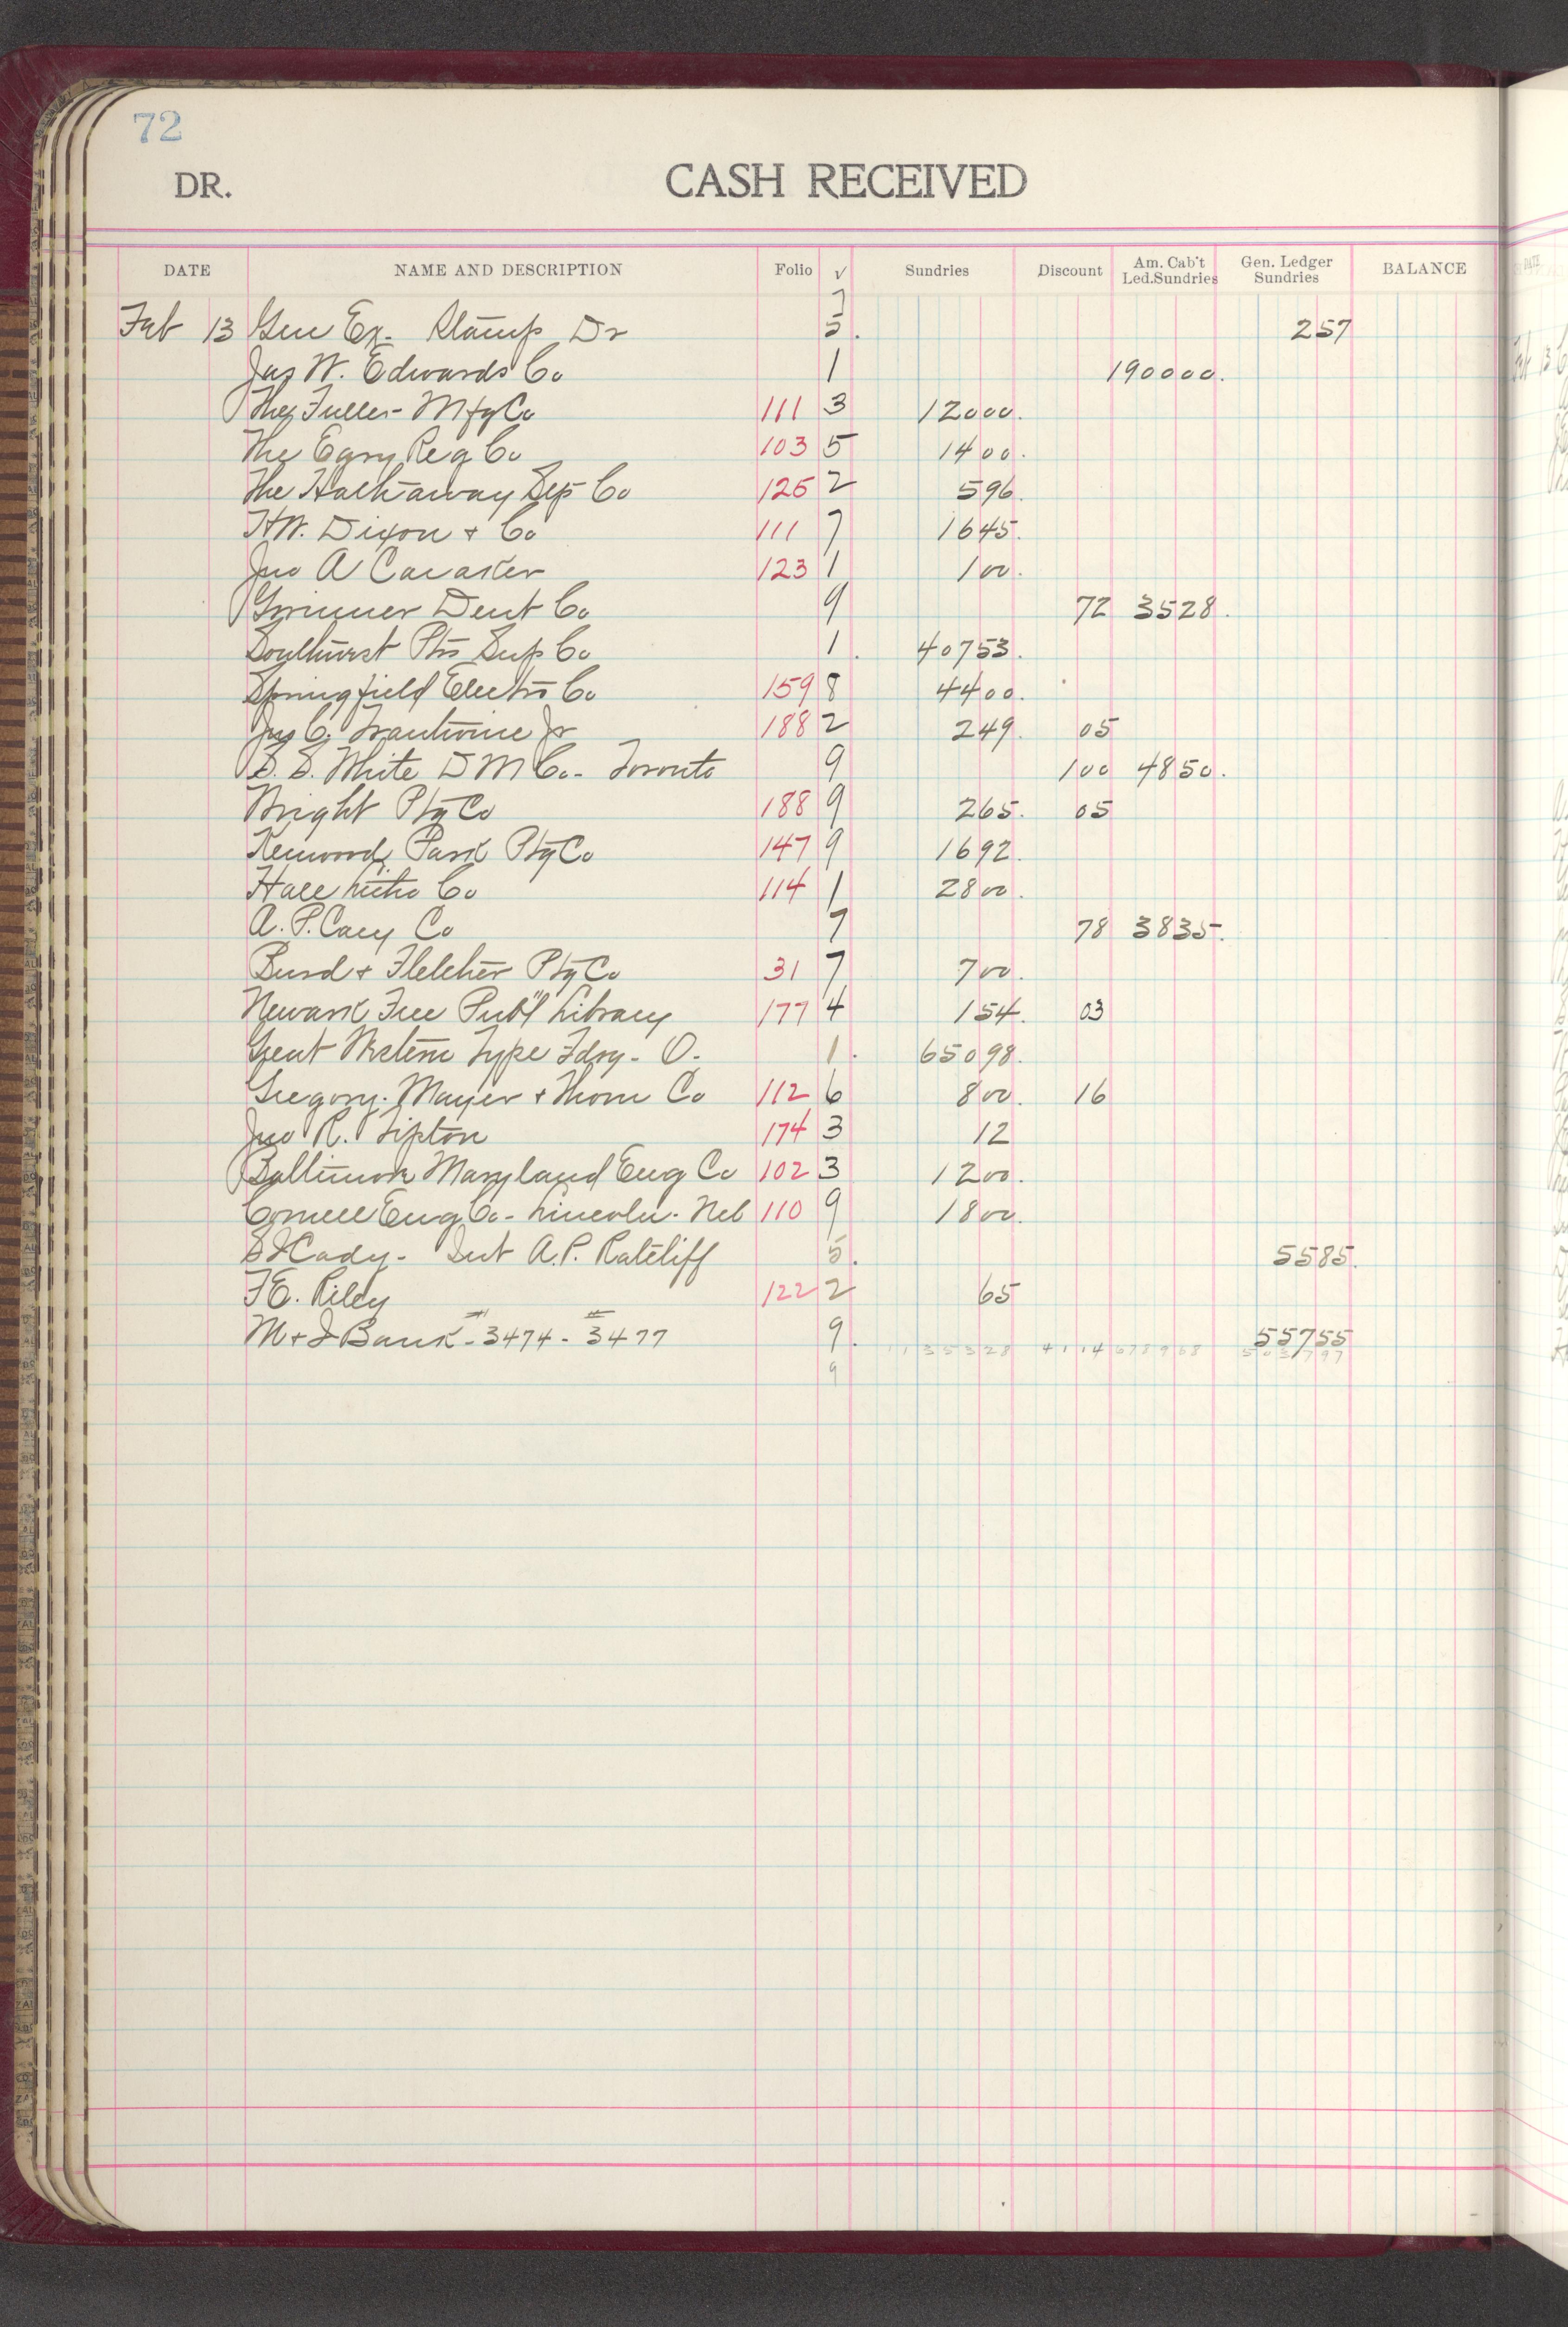 72
DR. CASH RECEIVED
DATE NAME AND DESCRIPTION Folio √ Sundries Discount Am. Cab't Led.Sundries Gen. Ledger Sundries BALANCE
7
Feb 13 Gen Ex. Stamp Dr 5. 257
Jas W. Edwards Co 1 190000.
The Fuller Mfg Co 111 3 12000.
The Egry Reg Co 103 5 1400.
The Hathaway Co 125 2 596.
H.W. Dixon + Co 111 7 1645.
Jno A 123 1 100.
Dent Co 9 72 3528.
Ptrs Sup Co 1. 40753.
Springfield Electro Co 159 8 4400.
Jno C. Trautwine Jr 188 2 249. 05
S. S. White D M Co - Toronto 9 100 4850.
Wright Ptg Co 188 9 265. 05
Kenwood Park Ptg Co 147 9 1692.
Hall Litho Co 114 1 2800.
A. P. Cary Co 7 78 3835.
Burd + Fletcher Ptg Co 31 7 700.
Newark Free Pub'l Library 177 4 154. 03
Great Western Type Fdry - O. 1. 65098.
Gregory. Mayer + Thom Co 112 6 800. 16
Jno R. Lipton 174 3 12
Baltimore Maryland Eng Co 102 3 1200.
Cornell Eng Co - Lincoln. Neb 110 9 1800.
Cady - Int A. P. Ratcliff 5. 5585.
F E. Riley 122 2 65
M + I Bank - 3474 - 3477 9. 55755
9 1135328 4114 678968